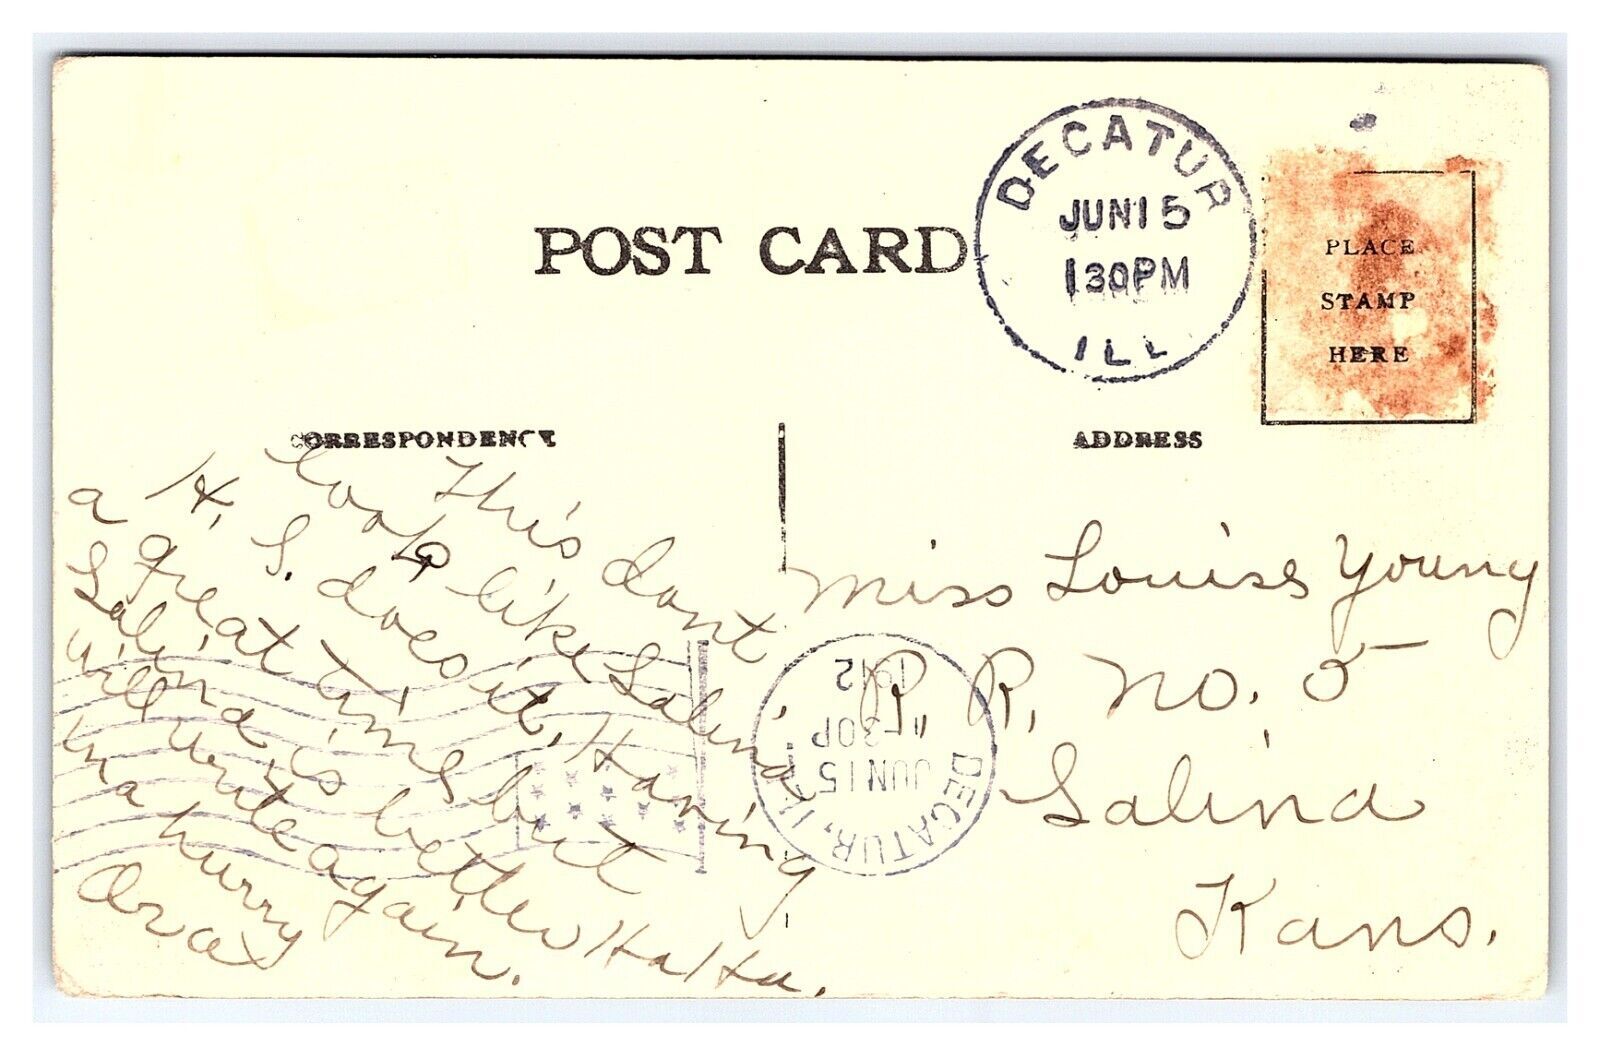 POST CARD
DECATUR
JUN 15
130PM
ILL
PLACE
STAMP
HERE
CORRESPONDENCE
ADDRESS
This dont
look like Salina
H. S. does it. Having
a great time but
Salina is better Ha Ha.
will write again.
in a hurry
Ora
Miss Louise Young
R. R. No. 5
Salina
Kans.
DECATUR, ILL.
JUN 15
30P
1912